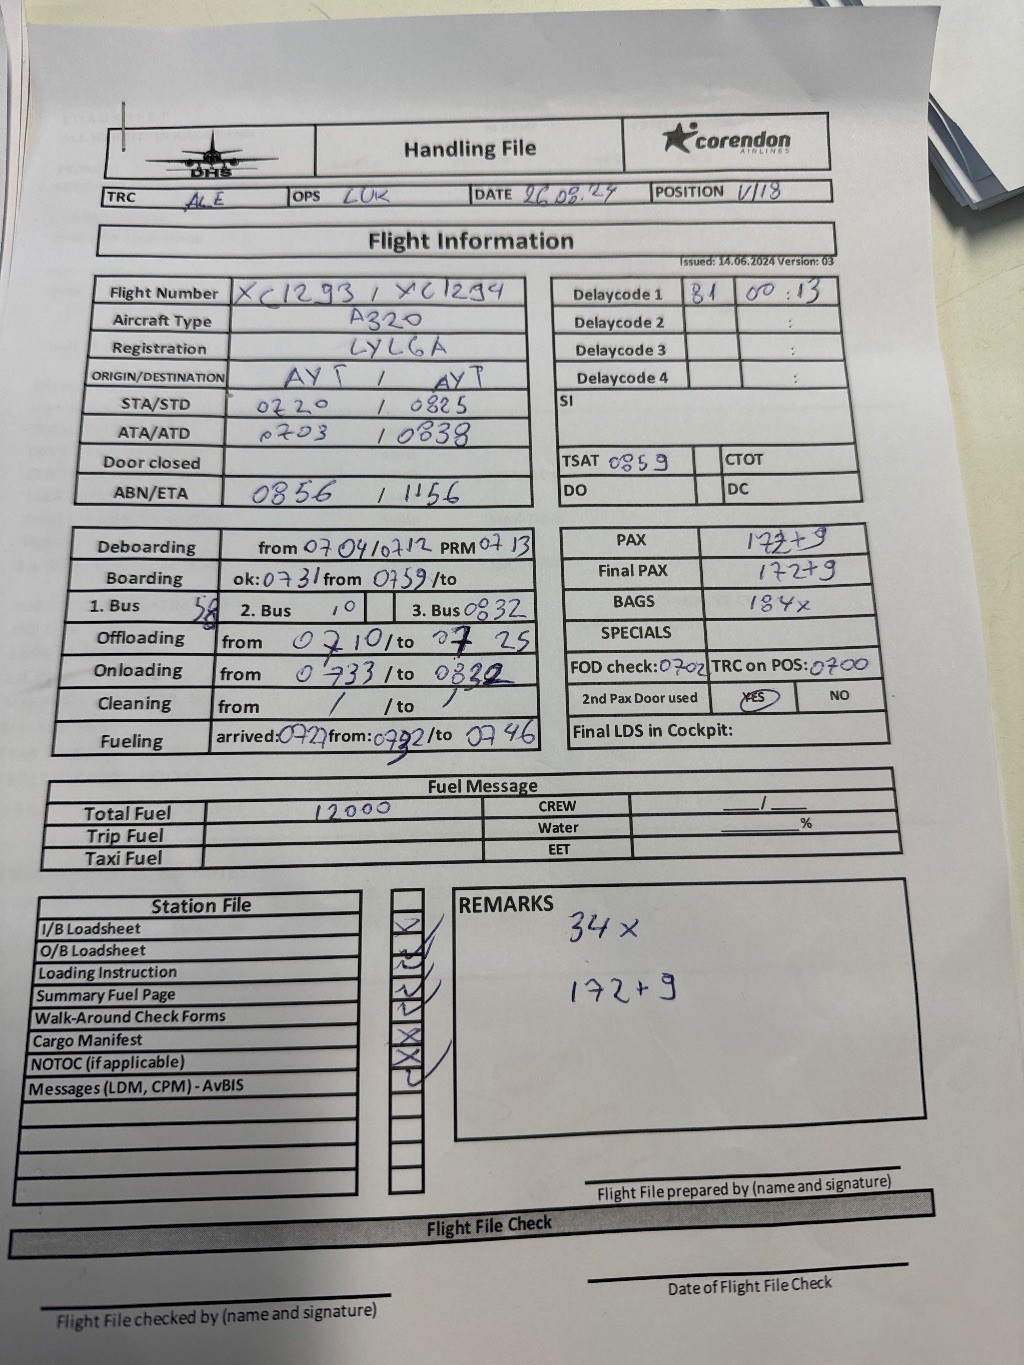 DHS
Handling File
corendon
AIRLINES
TRC ALE OPS LUK DATE 26.08.24 POSITION V/18
Flight Information
Issued: 14.06.2024 Version: 03
Flight Number XC1293 / XC1294
Aircraft Type A320
Registration LYLGA
ORIGIN/DESTINATION AYT / AYT
STA/STD 0720 / 0825
ATA/ATD 0703 / 0838
Door closed
ABN/ETA 0856 / 1156
Delaycode 1 81 00:13
Delaycode 2 :
Delaycode 3 :
Delaycode 4 :
SI
TSAT 0859 CTOT
DO DC
Deboarding from 0704/0712 PRM 0713
Boarding ok:0731 from 0759/to
1. Bus 58 2. Bus 10 3. Bus 0832
Offloading from 0710/to 0725
Onloading from 0733/to 0832
Cleaning from / /to /
Fueling arrived:0727 from:0732/to 0746
PAX 172+9
Final PAX 172+9
BAGS 184x
SPECIALS
FOD check:0702 TRC on POS:0700
2nd Pax Door used YES NO
Final LDS in Cockpit:
Fuel Message
Total Fuel 12000 CREW ___/___
Trip Fuel Water ______%
Taxi Fuel EET
Station File
I/B Loadsheet
O/B Loadsheet
Loading Instruction
Summary Fuel Page
Walk-Around Check Forms
Cargo Manifest
NOTOC (if applicable)
Messages (LDM, CPM) - AvBIS
REMARKS
34 x
172+9
Flight File prepared by (name and signature)
Flight File Check
Flight File checked by (name and signature)
Date of Flight File Check